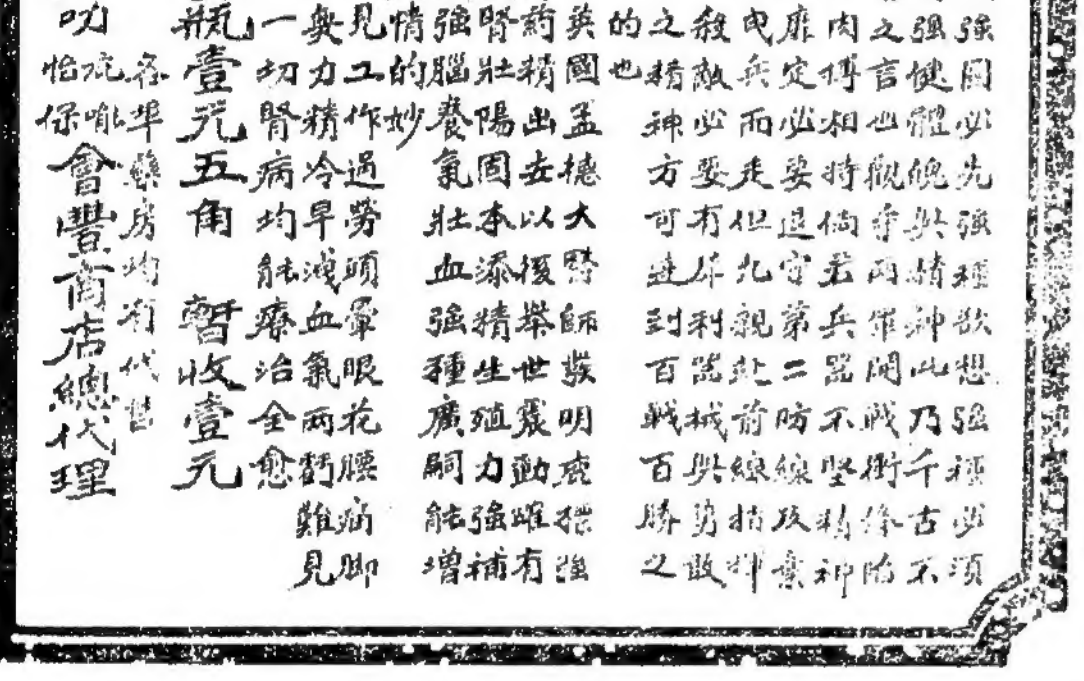 強國必先強種欲想強種必須
強健體魄與精神此乃千古不
之言也觀乎兩軍開戰衝鋒陷
肉博相持倘若兵器不堅精神
靡定必要退守第二防線及棄
曳兵而走但凡親赴前線指揮
殺敵必要有犀利器械與勇敢
之精神方可達到百戰百勝之
的也
英國孟德大醫師發明鹿茸強
藥精出安以後舉世震動確有
腎壯陽固本添精生殖力強補
強腦養氣壯血強種廣嗣能增
情的妙
見工作過勞頭暈眼花腰痛腳
與力精冷早洩血氣兩虧難見
一切腎病均能療治全愈
瓶壹元五角 暫收壹元
各埠藥房均有代售
叻 怡保 會豐商店總代理